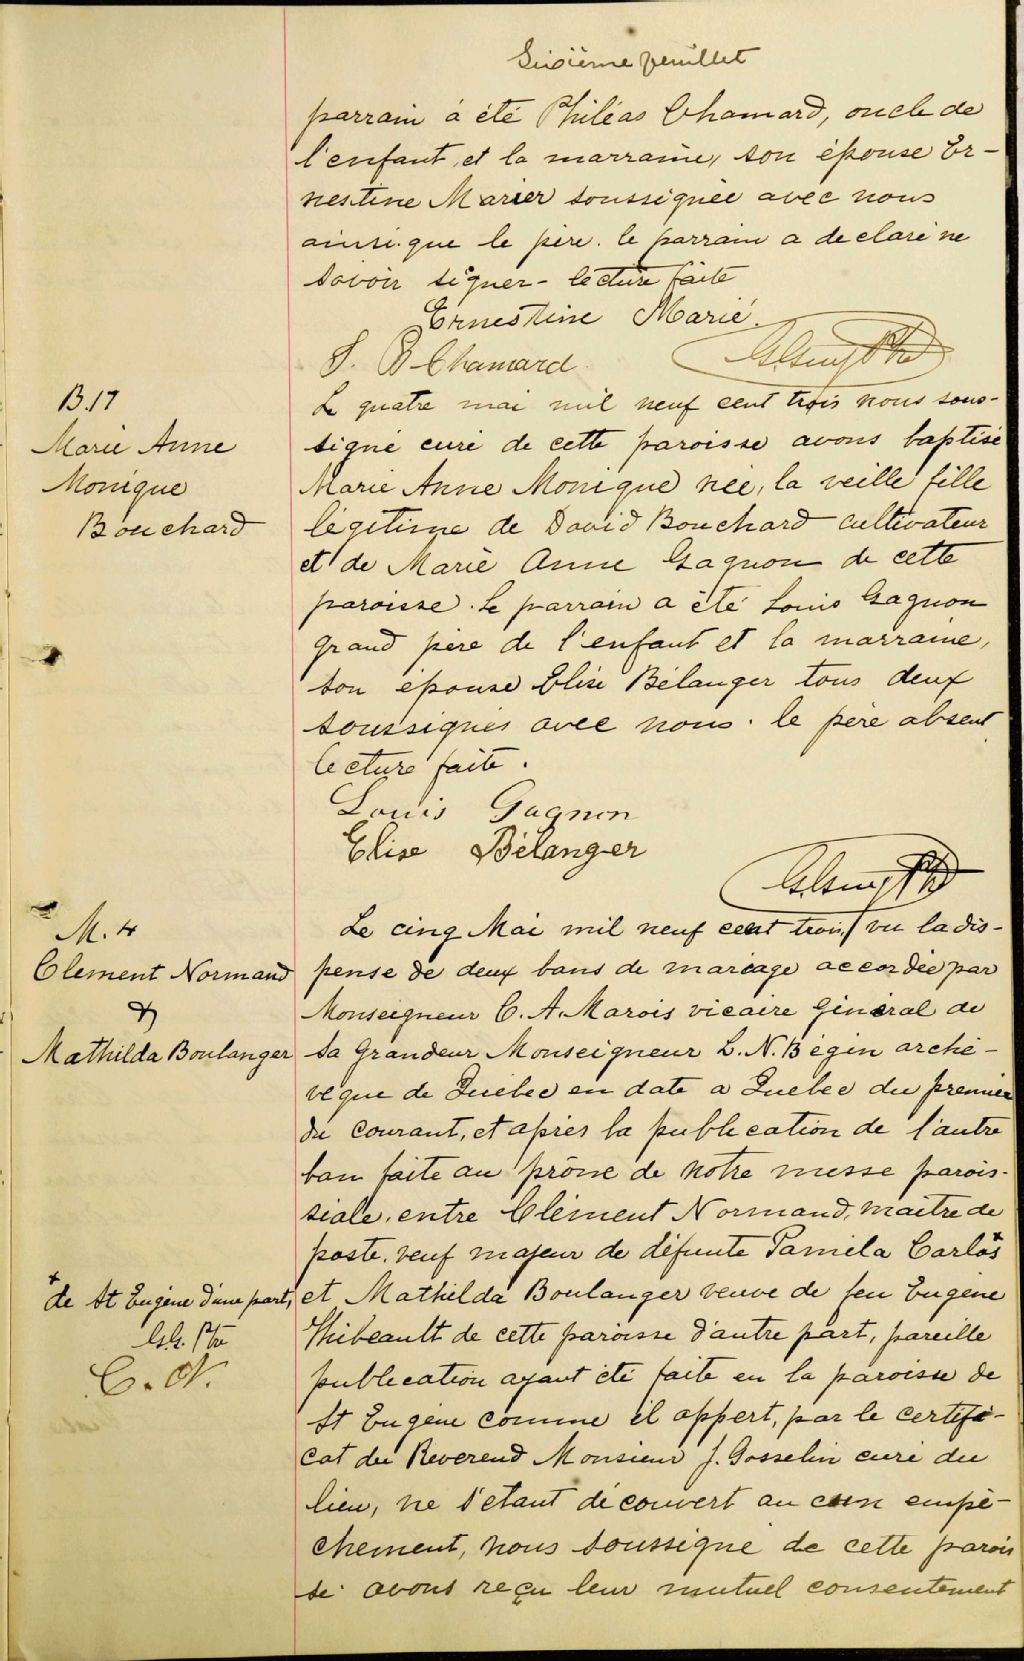 Sixième feuillet
parrain a été Philéas Chamard, oncle de
l'enfant, et la marraine, son épouse Er-
nestine Marier soussignée avec nous
ainsi que le père. le parrain a declaré ne
savoir signer - lecture faite
Ernestine Marié.
S. B Chamard
B.17
Marie Anne
Monique
Bouchard
Le quatre mai mil neuf cent trois nous sous-
signé curé de cette paroisse avons baptisé
Marie Anne Monique née, la veille fille
légitime de David Bouchard cultivateur
et de Marie Anne Gagnon de cette
paroisse. Le parrain a été Louis Gagnon
grand père de l'enfant et la marraine,
son épouse Elise Bélanger tous deux
soussignés avec nous. le père absent
lecture faite.
Louis Gagnon
Elise Bélanger
M. 4
Clement Normand
&
Mathilda Boulanger
Le cinq Mai mil neuf cent trois, vu la dis-
pense de deux bans de mariage accordée par
Monseigneur C. A. Marois vicaire Général de
Sa Grandeur Monseigneur L. N. Bégin arche-
veque de Québec en date a Quebec du premier
du courant, et après la publication de l'autre
ban faite au prône de notre messe parois-
siale, entre Clément Normand, maitre de
poste, veuf majeur de défunte Pamela Carlos+
+ de St Eugène d'une part,
G.G. Ptre
C. N.
et Mathilda Boulanger veuve de feu Eugène
Thibeault de cette paroisse d'autre part, pareille
publication ayant été faite en la paroisse de
St Eugène comme il appert, par le certifi-
cat du Reverend Monsieur J. Gosselin curé du
lieu, ne s'etant découvert aucun empê-
chement, nous soussigné de cette parois
se avons reçu leur mutuel consentement